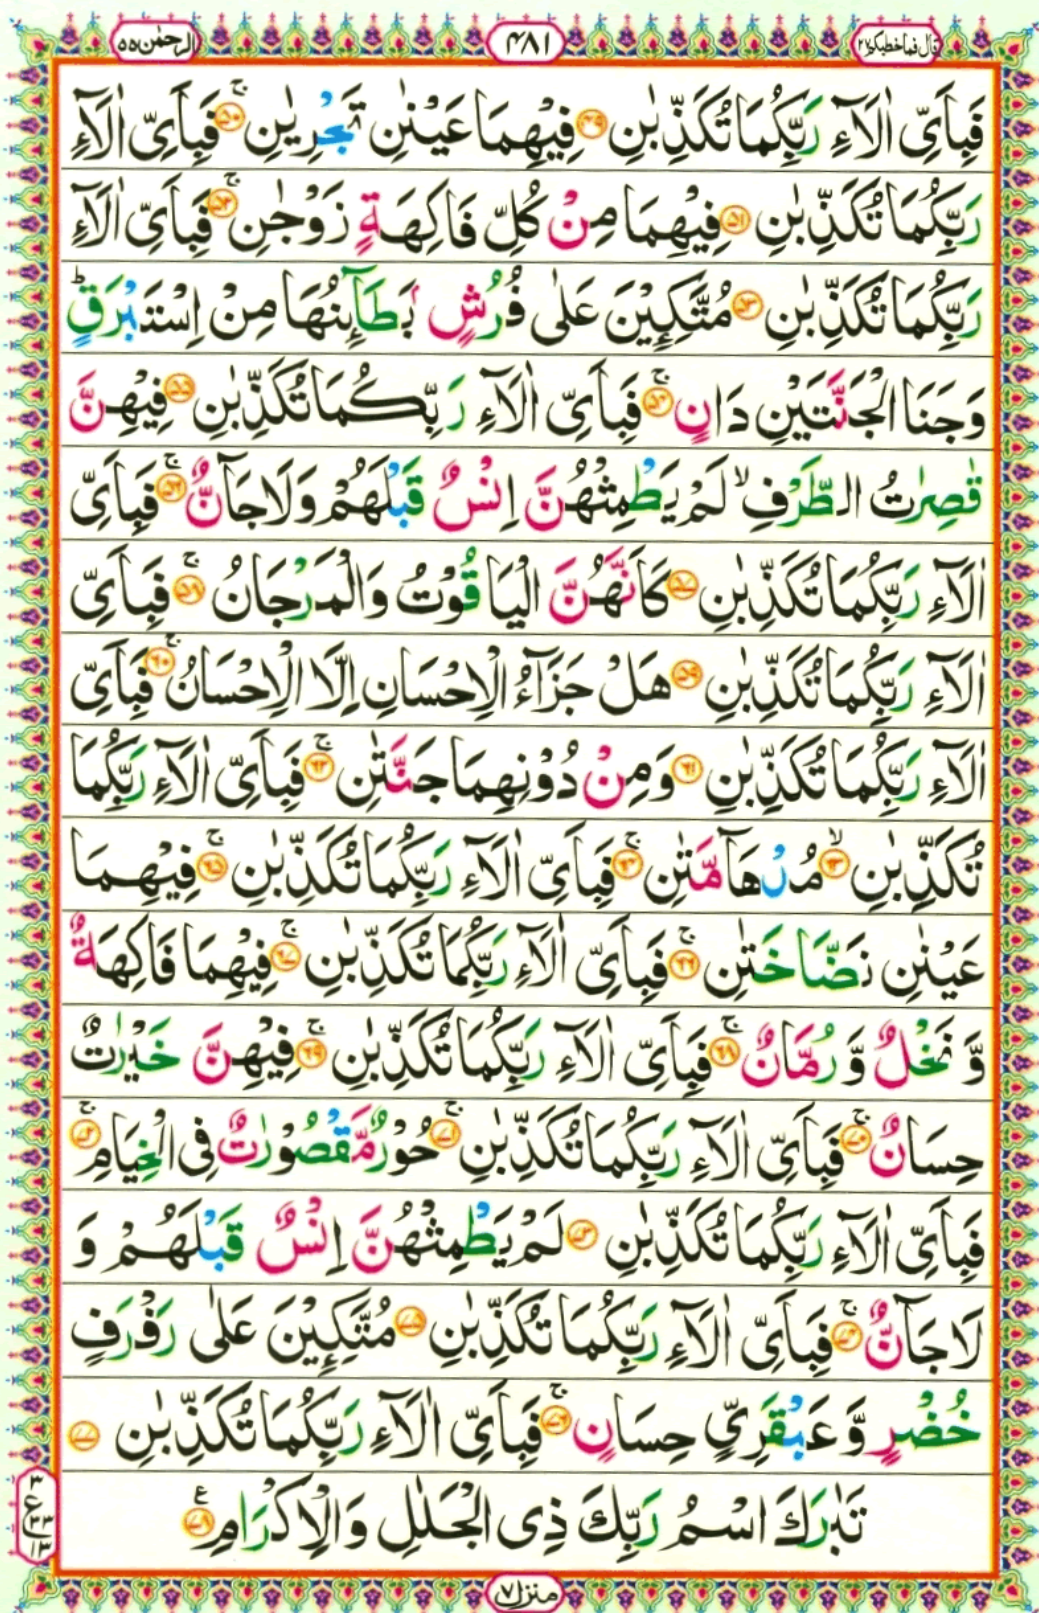 قال فما خطبكم ٢٧ ٤٨١ الرحمٰن ٥٥
فَبِاَىِّ اٰلَآءِ رَبِّكُمَا تُكَذِّبٰنِ ﴿٤٩﴾ فِيْهِمَا عَيْنٰنِ تَجْرِيٰنِ ۚ﴿٥٠﴾ فَبِاَىِّ اٰلَآءِ
رَبِّكُمَا تُكَذِّبٰنِ ﴿٥١﴾ فِيْهِمَا مِنْ كُلِّ فَاكِهَةٍ زَوْجٰنِ ۚ﴿٥٢﴾ فَبِاَىِّ اٰلَآءِ
رَبِّكُمَا تُكَذِّبٰنِ ﴿٥٣﴾ مُتَّكِـِٕيْنَ عَلٰى فُرُشٍۭ بَطَآئِنُهَا مِنْ اِسْتَبْرَقٍ ؕ
وَجَنَا الْجَنَّتَيْنِ دَانٍ ۚ﴿٥٤﴾ فَبِاَىِّ اٰلَآءِ رَبِّكُمَا تُكَذِّبٰنِ ﴿٥٥﴾ فِيْهِنَّ
قٰصِرٰتُ الطَّرْفِ ۙ لَمْ يَطْمِثْهُنَّ اِنْسٌ قَبْلَهُمْ وَلَا جَآنٌّ ۚ﴿٥٦﴾ فَبِاَىِّ
اٰلَآءِ رَبِّكُمَا تُكَذِّبٰنِ ﴿٥٧﴾ كَاَنَّهُنَّ الْيَاقُوْتُ وَالْمَرْجَانُ ۚ﴿٥٨﴾ فَبِاَىِّ
اٰلَآءِ رَبِّكُمَا تُكَذِّبٰنِ ﴿٥٩﴾ هَلْ جَزَآءُ الْاِحْسَانِ اِلَّا الْاِحْسَانُ ۚ﴿٦٠﴾ فَبِاَىِّ
اٰلَآءِ رَبِّكُمَا تُكَذِّبٰنِ ﴿٦١﴾ وَمِنْ دُوْنِهِمَا جَنَّتٰنِ ۚ﴿٦٢﴾ فَبِاَىِّ اٰلَآءِ رَبِّكُمَا
تُكَذِّبٰنِ ۙ﴿٦٣﴾ مُدْهَآمَّتٰنِ ۚ﴿٦٤﴾ فَبِاَىِّ اٰلَآءِ رَبِّكُمَا تُكَذِّبٰنِ ۚ﴿٦٥﴾ فِيْهِمَا
عَيْنٰنِ نَضَّاخَتٰنِ ۚ﴿٦٦﴾ فَبِاَىِّ اٰلَآءِ رَبِّكُمَا تُكَذِّبٰنِ ۚ﴿٦٧﴾ فِيْهِمَا فَاكِهَةٌ
وَّ نَخْلٌ وَّ رُمَّانٌ ۚ﴿٦٨﴾ فَبِاَىِّ اٰلَآءِ رَبِّكُمَا تُكَذِّبٰنِ ۚ﴿٦٩﴾ فِيْهِنَّ خَيْرٰتٌ
حِسَانٌ ۚ﴿٧٠﴾ فَبِاَىِّ اٰلَآءِ رَبِّكُمَا تُكَذِّبٰنِ ۚ﴿٧١﴾ حُوْرٌ مَّقْصُوْرٰتٌ فِى الْخِيَامِ ۚ﴿٧٢﴾
فَبِاَىِّ اٰلَآءِ رَبِّكُمَا تُكَذِّبٰنِ ﴿٧٣﴾ لَمْ يَطْمِثْهُنَّ اِنْسٌ قَبْلَهُمْ وَ
لَا جَآنٌّ ۚ﴿٧٤﴾ فَبِاَىِّ اٰلَآءِ رَبِّكُمَا تُكَذِّبٰنِ ﴿٧٥﴾ مُتَّكِـِٕيْنَ عَلٰى رَفْرَفٍ
خُضْرٍ وَّ عَبْقَرِىٍّ حِسَانٍ ۚ﴿٧٦﴾ فَبِاَىِّ اٰلَآءِ رَبِّكُمَا تُكَذِّبٰنِ ﴿٧٧﴾
تَبٰرَكَ اسْمُ رَبِّكَ ذِى الْجَلٰلِ وَالْاِكْرَامِ ﴿٧٨﴾ ع
٣
ع ٣٣
١٣
منزل ٧